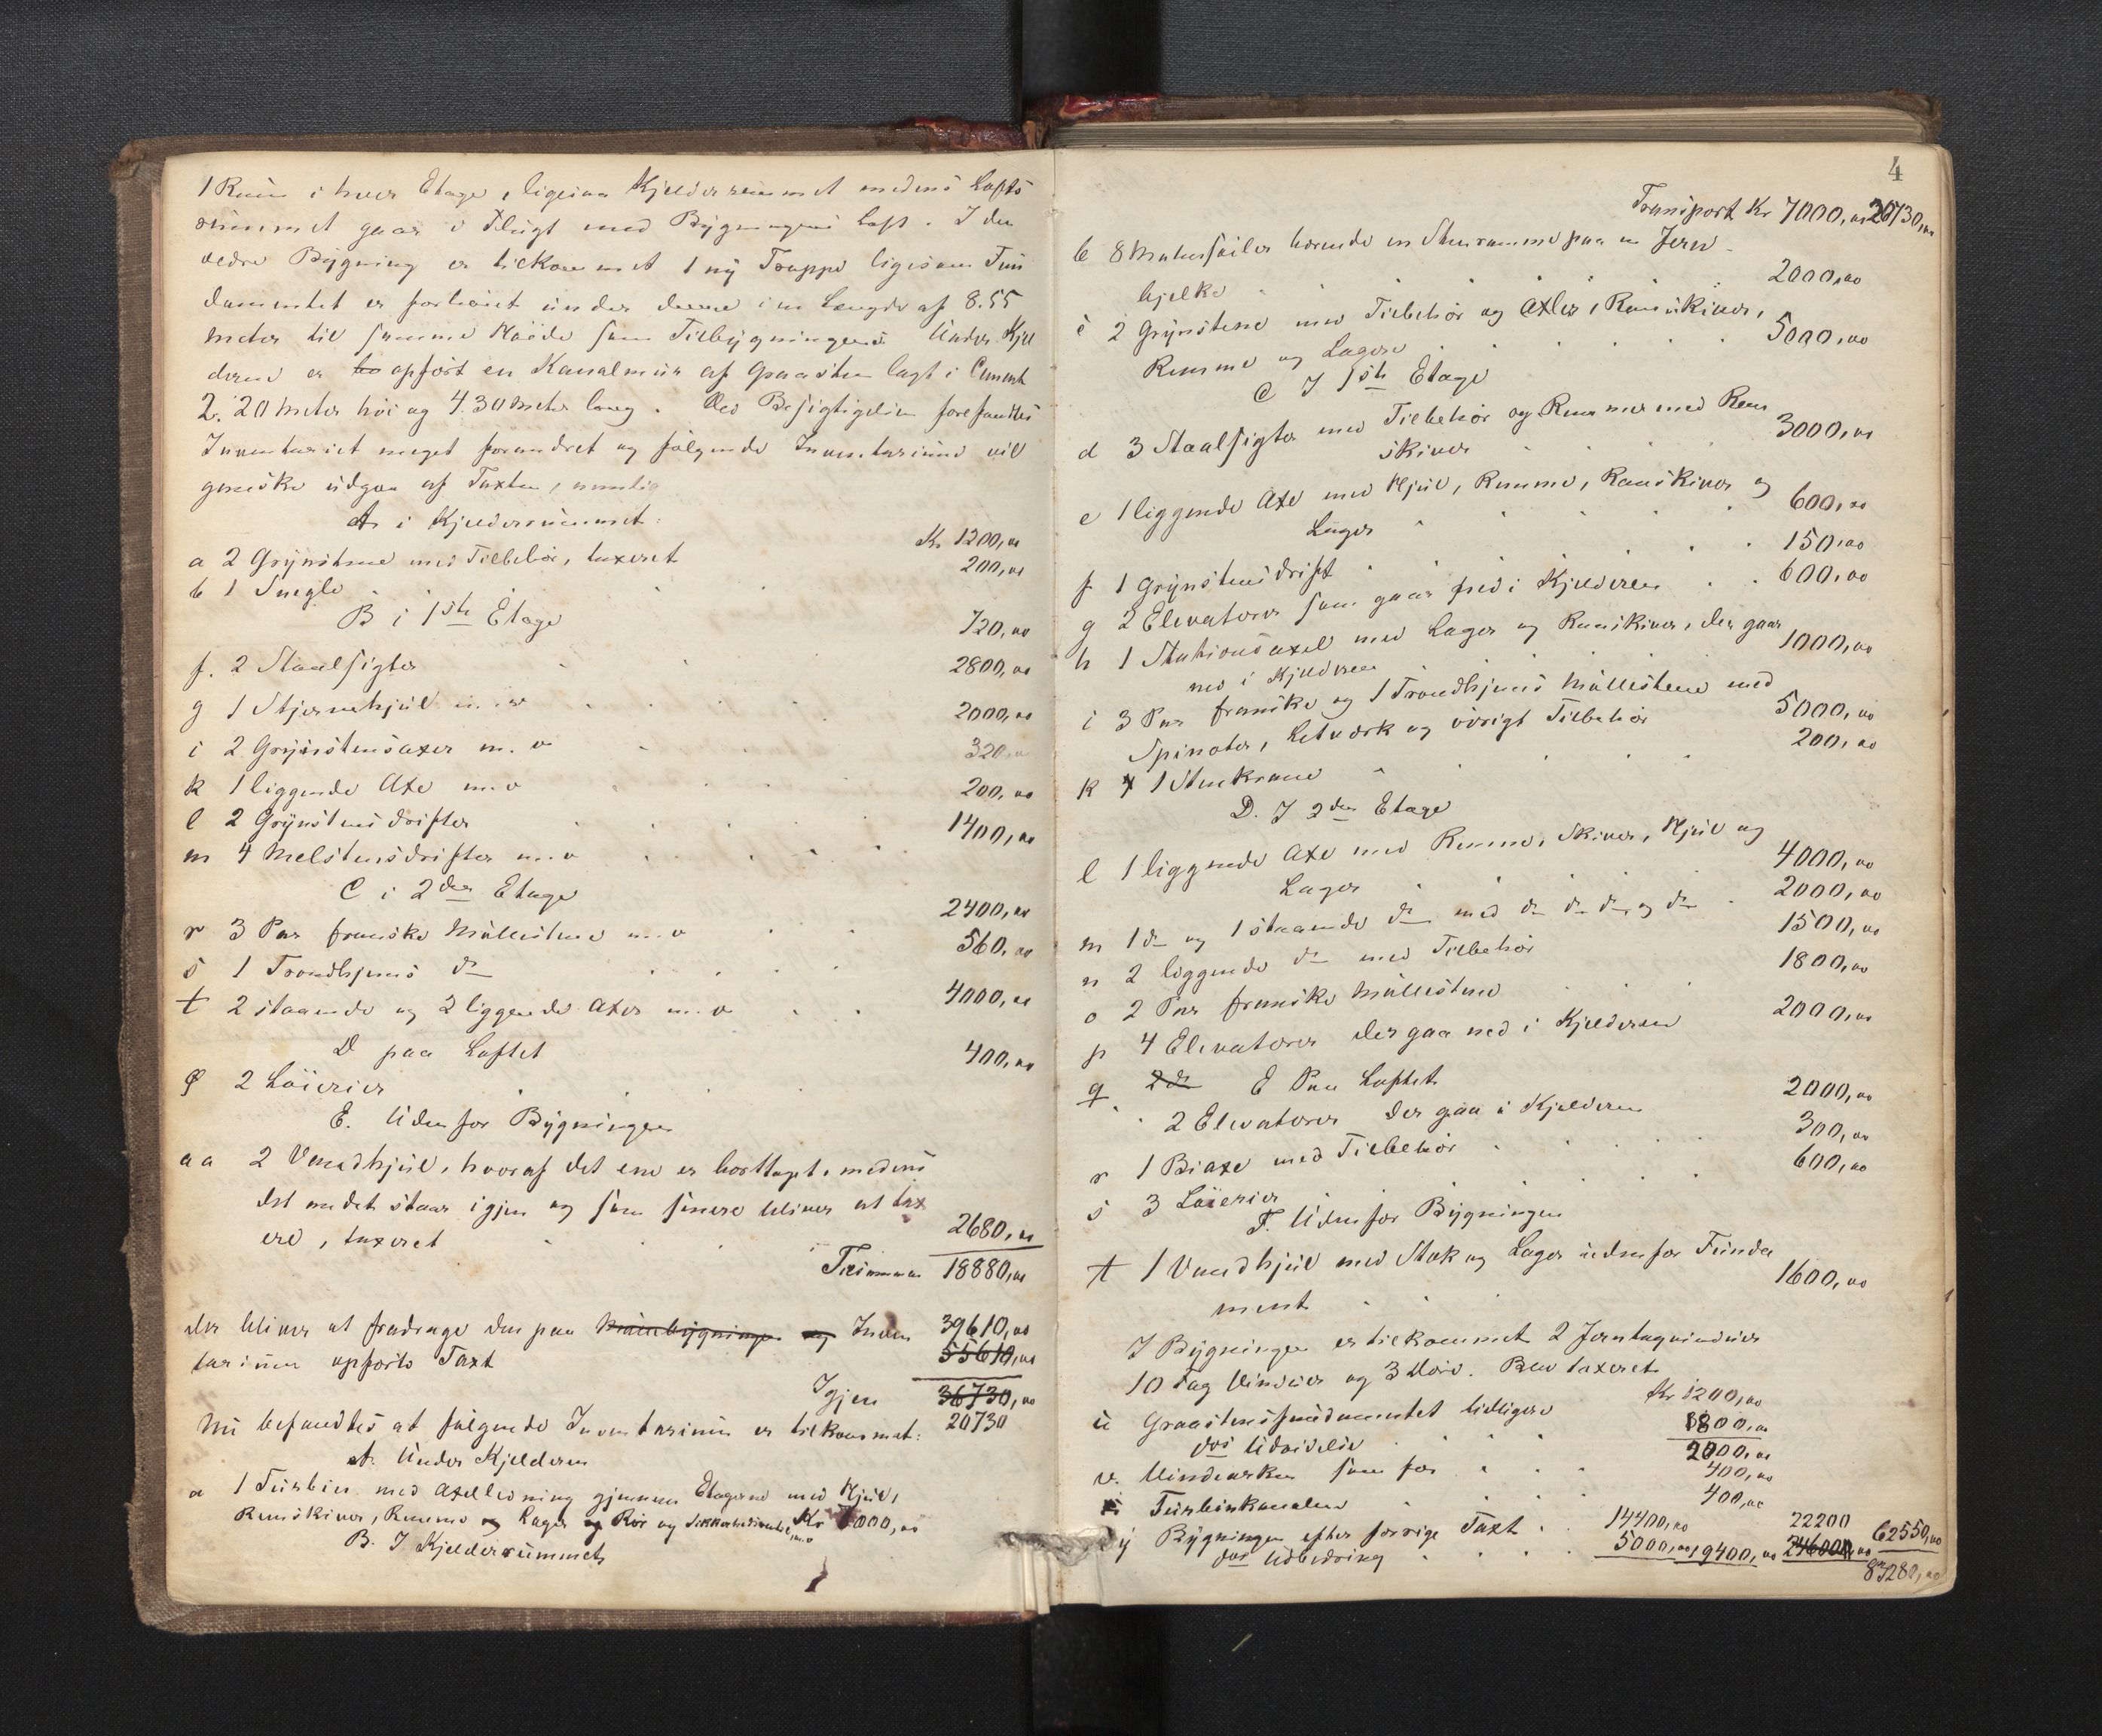 1 Rum i hver Etage, ligesaa Kjelderrummet medens Lofts
rummet gaar i Flugt med Bygningens Loft. I den
ældre Bygning er tilkommet 1 ny Trappe ligesom Fun
damentet er forhöiet under denne i en Længde af 8.55
meter til samme Höide som Tilbygningens. Under Kjel
deren er opfört en Kanalmur af Graasten lagt i Cement
2.20 Meter höi og 4.30 Meter lang. Ved Besigtigelsen forefandtes
Inventariet meget forandret og fölgende Inventarium vil
ganske udgaa af Taxten, nemlig
A i Kjelderrummet:
a 2 Grynstene med Tilbehör, taxeret Kr 1200,00
b 1 Snegle 200,00
B i 1ste Etage
f. 2 Staalsigter 720,00
g 1 Stjernehjul m. v 2800,00
i 2 Grynstensaxer m. v 2000,00
k 1 liggende Axe m. v 320,00
l 2 Grynstensdrifter 200,00
m 4 Melstensdrifter m. v 1400,00
C i 2den Etage
r 3 Par franske Möllestene m. v 2400,00
s 1 Trondhjems do 560,00
t 2 staaende og 2 liggende Axer m. v 4000,00
D paa Loftet
2 Löierier 400,00
E. Udenfor Bygningen
aa 2 Vandhjul, hvoraf det ene er borttaget, medens
det andet staar igjen og som senere bliver at tax
ere, taxeret 2680,00
Tilsammen 18880,00
der bliver at fradrage den paa Mursbygningen og Inven 39610,00
tarium opförte Taxt 55610,00
Igjen 36730,00
Nu befandtes at fölgende Inventarium er tilkommet: 20730
A. Under Kjelderen
a 1 Turbin med Axelledning gjennem Etagerne med Hjul,
Remskiver, Remme og Lager og Rör og m.v Kr 7000,00
B. I Kjelderrummet
4
Transport Kr 7000,00 20730,00
b 8 Mursöiler bærende en Stenramme paa en Jern
bjelke 2000,00
c 2 Grynstene med Tilbehör og Axler, Remskiver,
Remme og Lagere 5000,00
C I 1ste Etage
d 3 Staalsigter med Tilbehör og Remmer med Rem
skiver 3000,00
e 1 liggende Axe med Hjul, Remme, Remskiver og
Lager 600,00
f 1 Grynstensdrift 150,00
g 2 Elevatorer som gaar ned i Kjelderen 600,00
h 1 Stationsaxel med Lager og Remskiver, der gaar
ned i Kjelderen 1000,00
i 3 Par franske og 1 Trondhjems Möllestene med
Spinater, Letværk og övrigt Tilbehör 5000,00
k 1 Stenkrane 200,00
D. I 2den Etage
l 1 liggende Axe med Remme, Skiver, Hjul og
Lager 4000,00
m 1 do og 1 staaende do med do do do og do 2000,00
n 2 liggende do med Tilbehör 1500,00
o 2 Par franske Möllestene 1800,00
p 4 Elevatorer der gaa ned i Kjelderen 2000,00
q 2 do E Paa Loftet
2 Elevatorer der gaa i Kjelderen 2000,00
r 1 Biaxe med Tilbehör 300,00
s 3 Löierier 600,00
F. Udenfor Bygningen
t 1 Vandhjul med Stok og Lager udenfor Funda
ment 1600,00
I Bygningen er tilkommet 2 Jerntagvinduer
10 Fag Vinduer og 3 Döre. Blev taxeret
u Graastensfundamentet tidligere Kr 1200,00
dets Udvidelse 800,00
2000,00
v. Vindverken som för 400,00
Turbinkanalen 400,00
y Bygningen efter forrige Taxt 14400,00 22200
dets Udbedring 5000,00 19400,00 24600,00 62550,00
83280,00